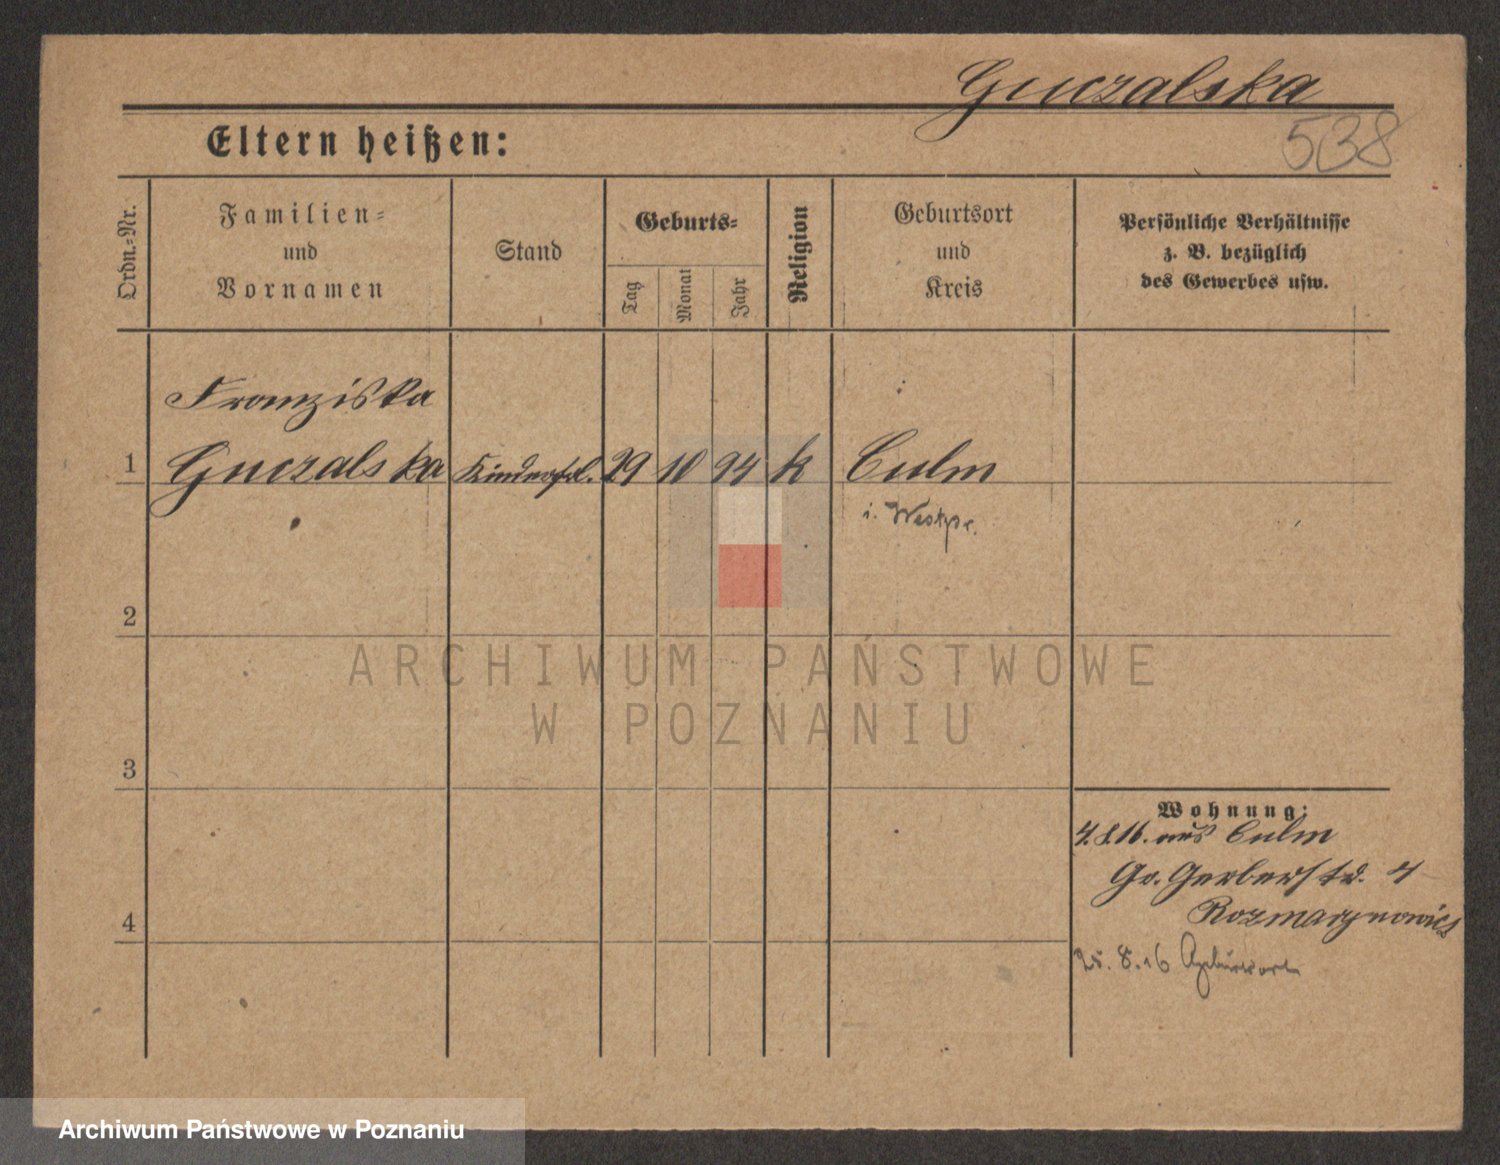 Guczalska
538
Eltern heißen:
Ordn.-Nr.
Familien-
und
Vornamen
Stand
Geburts-
Tag
Monat
Jahr
Religion
Geburtsort
und
Kreis
Persönliche Verhältnisse
z. B. bezüglich
des Gewerbes usw.
Franziska
1 Guczalska Kinderfrl. 29 10 94 k Culm
i. Westpr.
2
3
4
Wohnung:
4.8.16. aus Culm
Gr. Gerberstr. 4
Rozmarynowicz
25. 8. 16 Geburtsort
ARCHIWUM PAŃSTWOWE
W POZNANIU
Archiwum Państwowe w Poznaniu